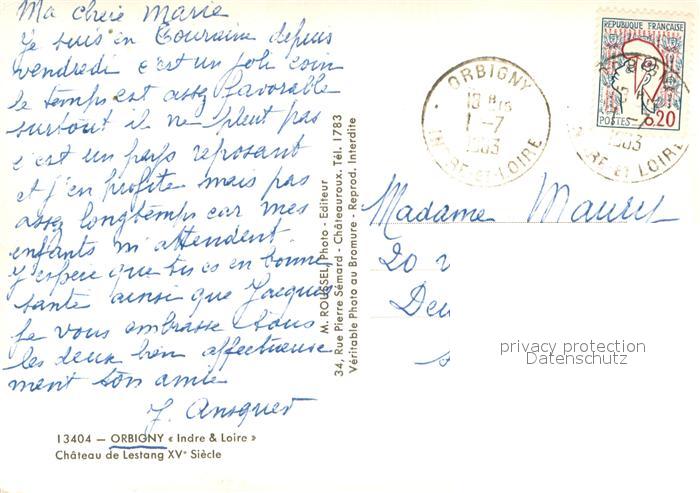 Ma chère Marie
Je suis en Touraine depuis
vendredi c'est un joli coin
le temps est assez favorable
surtout il ne pleut pas
c'est un pays reposant
et j'en profite mais pas
assez longtemps car mes
enfants m'attendent.
J'espère que tu es en bonne
santé ainsi que Jacques
Je vous embrasse tous
les deux bien affectueuse
ment ton amie
13404 — ORBIGNY « Indre & Loire »
Château de Lestang XVe Siècle
M. ROUSSEL, Photo - Editeur
34, Rue Pierre Sémard - Châteauroux. Tél. 1783
Véritable Photo au Bromure - Reprod. Interdite
ORBIGNY
13 H 15
1-7
1963
INDRE-ET-LOIRE
REPUBLIQUE FRANÇAISE
POSTES 0,20
1963
INDRE-ET-LOIRE
Madame
20
privacy protection
Datenschutz